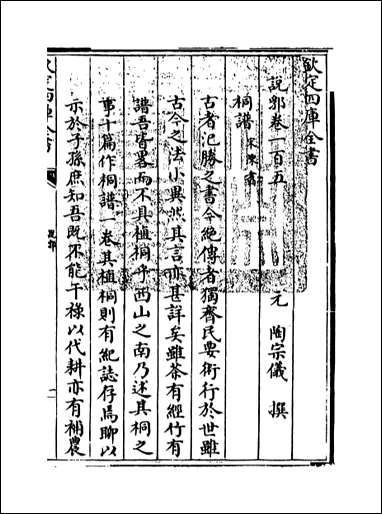 欽定四庫全書
說郛卷一百五
元 陶宗儀 撰
桐譜 宋陳翥
古者氾勝之書今絕傳者獨齊民要術行於世雖
古今之法小異然其言亦甚詳矣雖茶有經竹有
譜吾皆畧而不具植桐乎西山之南乃述其桐之
事十篇作桐譜一卷其植桐則有紀誌存焉聊以
示於子孫庶知吾既不能干祿以代耕亦有補農
欽定四庫全書
說郛